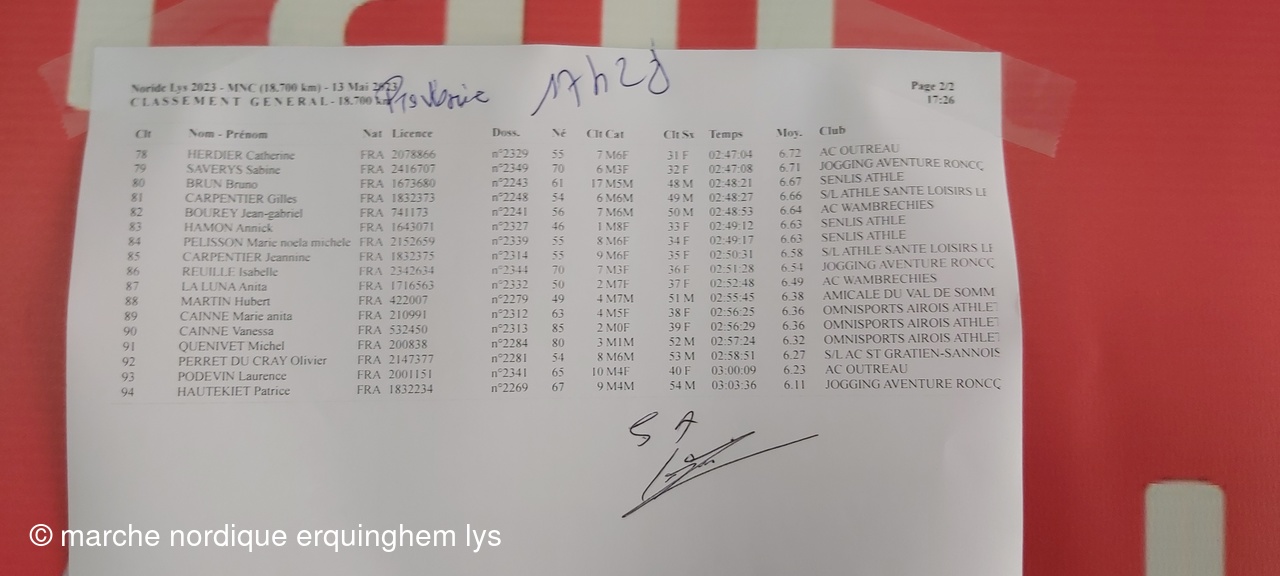 Noride Lys 2023 - MNC (18.700 km) - 13 Mai 2023
17h28
Page 2/2
CLASSEMENT GENERAL - 18.700 km
17:26
Clt Nom - Prénom Nat Licence Doss. Né Clt Cat Clt Sx Temps Moy. Club
78 HERDIER Catherine FRA 2078866 n°2329 55 7 M6F 31 F 02:47:04 6.72 AC OUTREAU
79 SAVERYS Sabine FRA 2416707 n°2349 70 6 M3F 32 F 02:47:08 6.71 JOGGING AVENTURE RONCQ
80 BRUN Bruno FRA 1673680 n°2243 61 17 M5M 48 M 02:48:21 6.67 SENLIS ATHLE
81 CARPENTIER Gilles FRA 1832373 n°2248 54 6 M6M 49 M 02:48:27 6.66 S/L ATHLE SANTE LOISIRS LE
82 BOUREY Jean-gabriel FRA 741173 n°2241 56 7 M6M 50 M 02:48:53 6.64 AC WAMBRECHIES
83 HAMON Annick FRA 1643071 n°2327 46 1 M8F 33 F 02:49:12 6.63 SENLIS ATHLE
84 PELISSON Marie noela michele FRA 2152659 n°2339 55 8 M6F 34 F 02:49:17 6.63 SENLIS ATHLE
85 CARPENTIER Jeannine FRA 1832375 n°2314 55 9 M6F 35 F 02:50:31 6.58 S/L ATHLE SANTE LOISIRS LE
86 REUILLE Isabelle FRA 2342634 n°2344 70 7 M3F 36 F 02:51:28 6.54 JOGGING AVENTURE RONCQ
87 LA LUNA Anita FRA 1716563 n°2332 50 2 M7F 37 F 02:52:48 6.49 AC WAMBRECHIES
88 MARTIN Hubert FRA 422007 n°2279 49 4 M7M 51 M 02:55:45 6.38 AMICALE DU VAL DE SOMM
89 CAINNE Marie anita FRA 210991 n°2312 63 4 M5F 38 F 02:56:25 6.36 OMNISPORTS AIROIS ATHLET
90 CAINNE Vanessa FRA 532450 n°2313 85 2 M0F 39 F 02:56:29 6.36 OMNISPORTS AIROIS ATHLET
91 QUENIVET Michel FRA 200838 n°2284 80 3 M1M 52 M 02:57:24 6.32 OMNISPORTS AIROIS ATHLET
92 PERRET DU CRAY Olivier FRA 2147377 n°2281 54 8 M6M 53 M 02:58:51 6.27 S/L AC ST GRATIEN-SANNOIS
93 PODEVIN Laurence FRA 2001151 n°2341 65 10 M4F 40 F 03:00:09 6.23 AC OUTREAU
94 HAUTEKIET Patrice FRA 1832234 n°2269 67 9 M4M 54 M 03:03:36 6.11 JOGGING AVENTURE RONCQ
S A
© marche nordique erquinghem lys